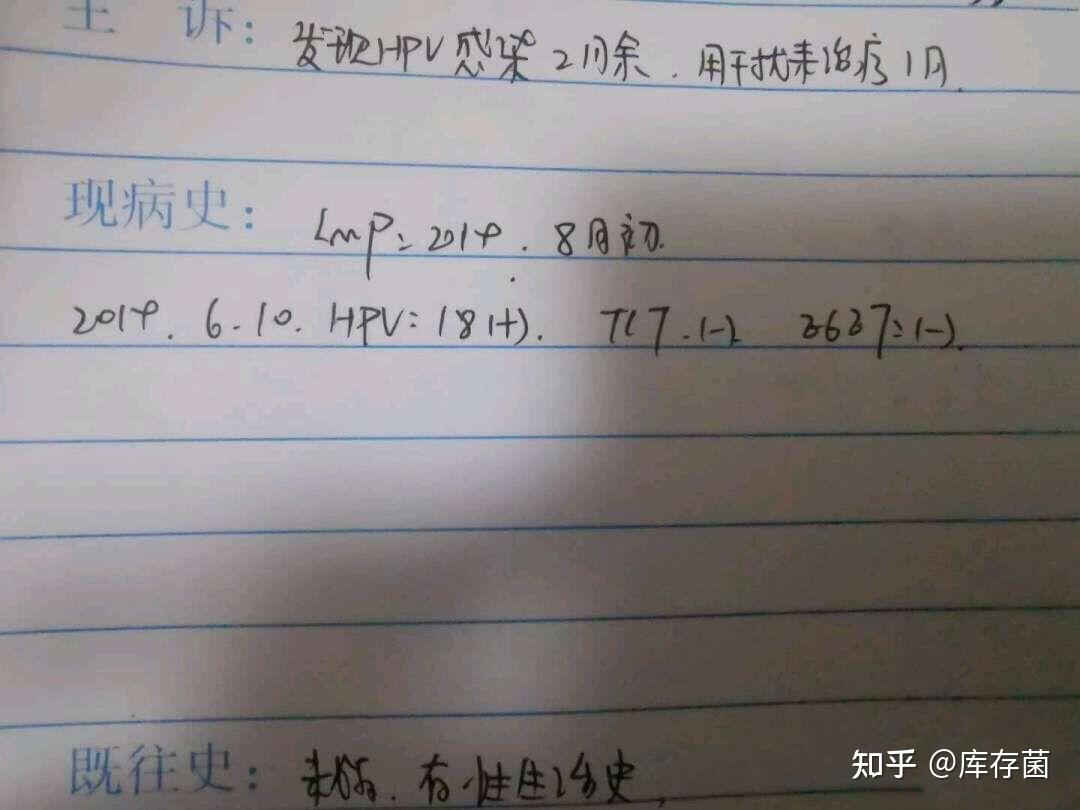 主 诉: 发现HPV感染2月余. 用干扰素治疗1月.
现病史: Lmp: 2019. 8月初.
2019. 6.10. HPV: 18(+). TCT.(-)
既往史: 未婚. 有性生活史,
知乎 @库存菌